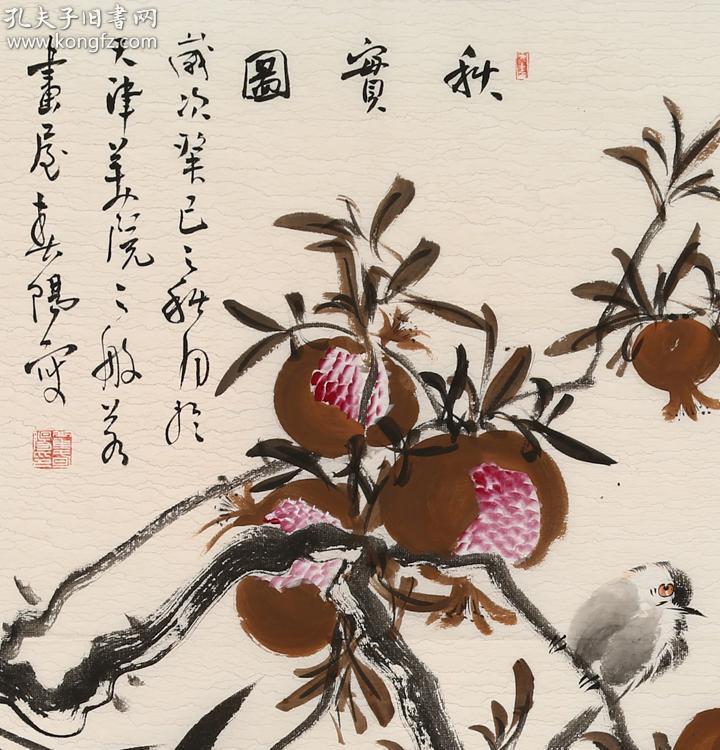 孔夫子旧书网
www.kongfz.com
秋實圖
歲次癸巳之秋月於
天津美院之般若
畫屋春陽寫